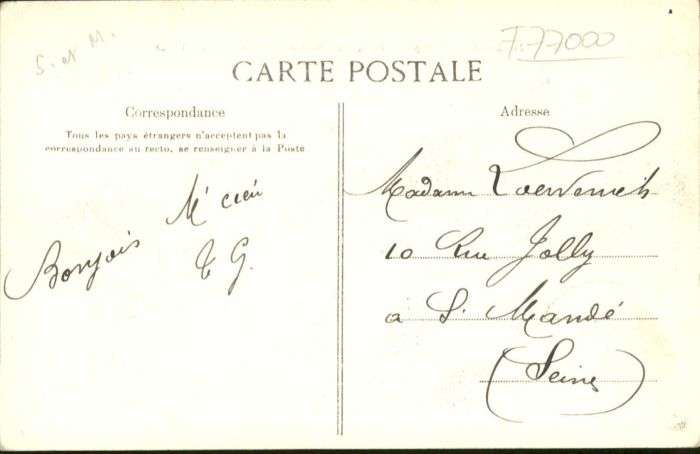 S. et M.
F. 77000
CARTE POSTALE
Correspondance
Tous les pays étrangers n'acceptent pas la
correspondance au recto, se renseigner à la Poste
Adresse
Madame
10 Rue Jolly
a St Mandé
(Seine)